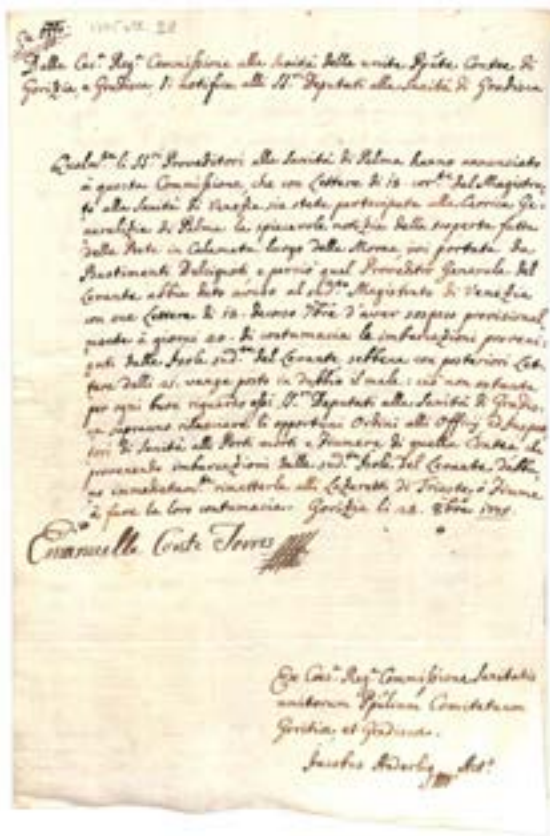 Ex Offo.
Dalla Ces.ª Reg.ª Commissione alla Sanità delle unite Contee di
Gorizia, e Gradisca, si notifica alli SS.ri Deputati alla Sanità di Gradisca
Qualm.te li SS.ri Proveditori alla Sanità di Palma hanno annunciato
à questa Commissione, che con Lettere di 18 cor.te dal Magistra-
to alla Sanità di Venezia sia stata partecipata alla Carica Ge-
neralizia di Palma la spiacevole notizia della scoperta fatta
della Peste in Calamata luogo della Morea, ivi portata da
Bastimenti Dulcignoti e perciò quel Proveditor Generale del
Levante abbia dato avviso al sud.to Magistrato di Venezia
con sue Lettere di 12. decorso 7bre d'aver sospeso provisional
mente à giorni 20. di contumacia le imbarcazioni proveni-
enti dalle Isole sud.e del Levante sebbene con posteriori Let-
tere delli 25. venga posto in dubbio il male: ciò non ostante
per ogni buon riguardo essi SS.ri Deputati alla Sanità di Gradis-
ca sapranno rilasciare le opportuni Ordini alli Officj ed Inspet
tori di Sanità alli Porti morti e Fiumere di quella Contea che
provenendo imbarcazioni dalle sud.e Isole del Levante debba-
no immediatam.te rimetterle alli Lazaretti di Trieste, ò Fiume
à fare la loro contumacia. Gorizia li 28. 8bre
Emanuelle Conte Torres
Ex Caes.ª Reg.ª Commissione Sanitatis
unitorum Comitatuum
Goritiae, et Gradiscae.
Jacobus Act.s